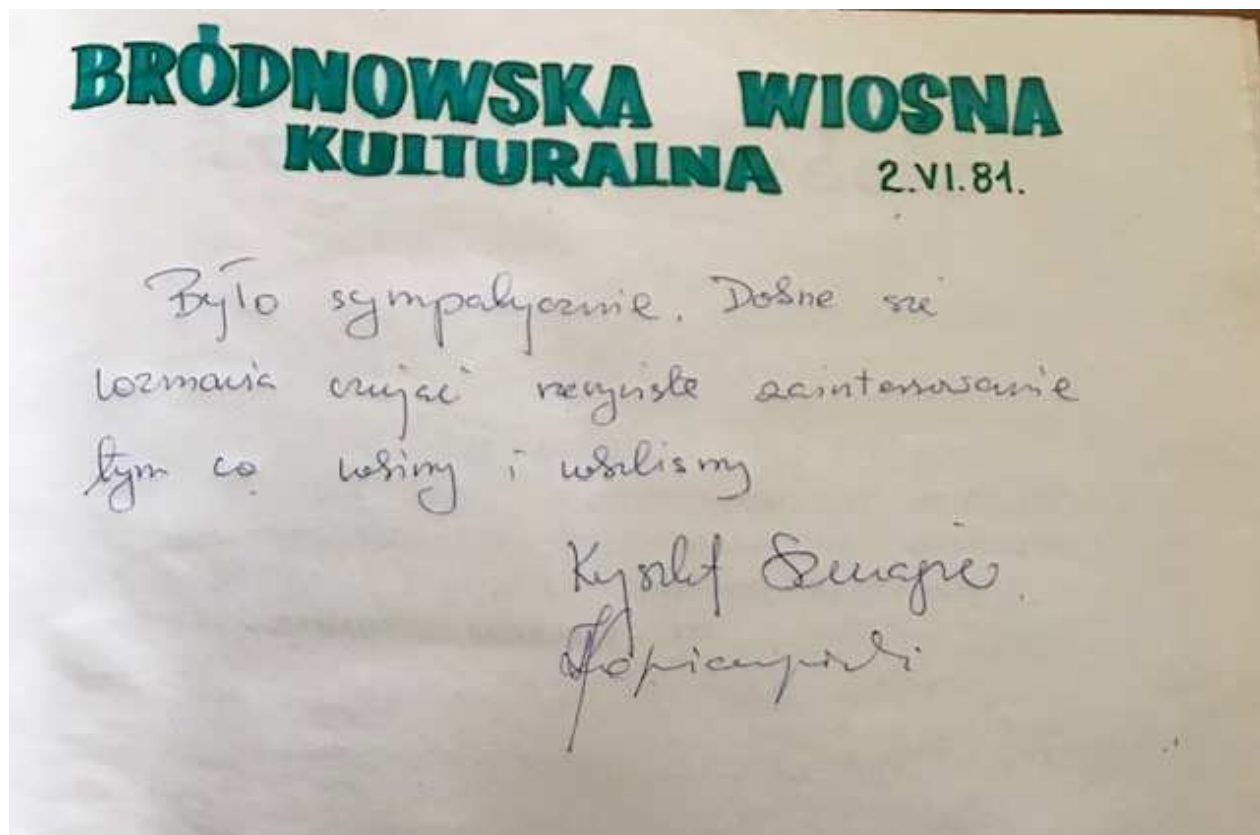 BRÓDNOWSKA WIOSNA
KULTURALNA 2.VI.81.
Było sympatycznie. Dobrze się
rozmawia czując rzeczywiste zainteresowanie
tym co robimy i robiliśmy
Krzysztof Szmagier